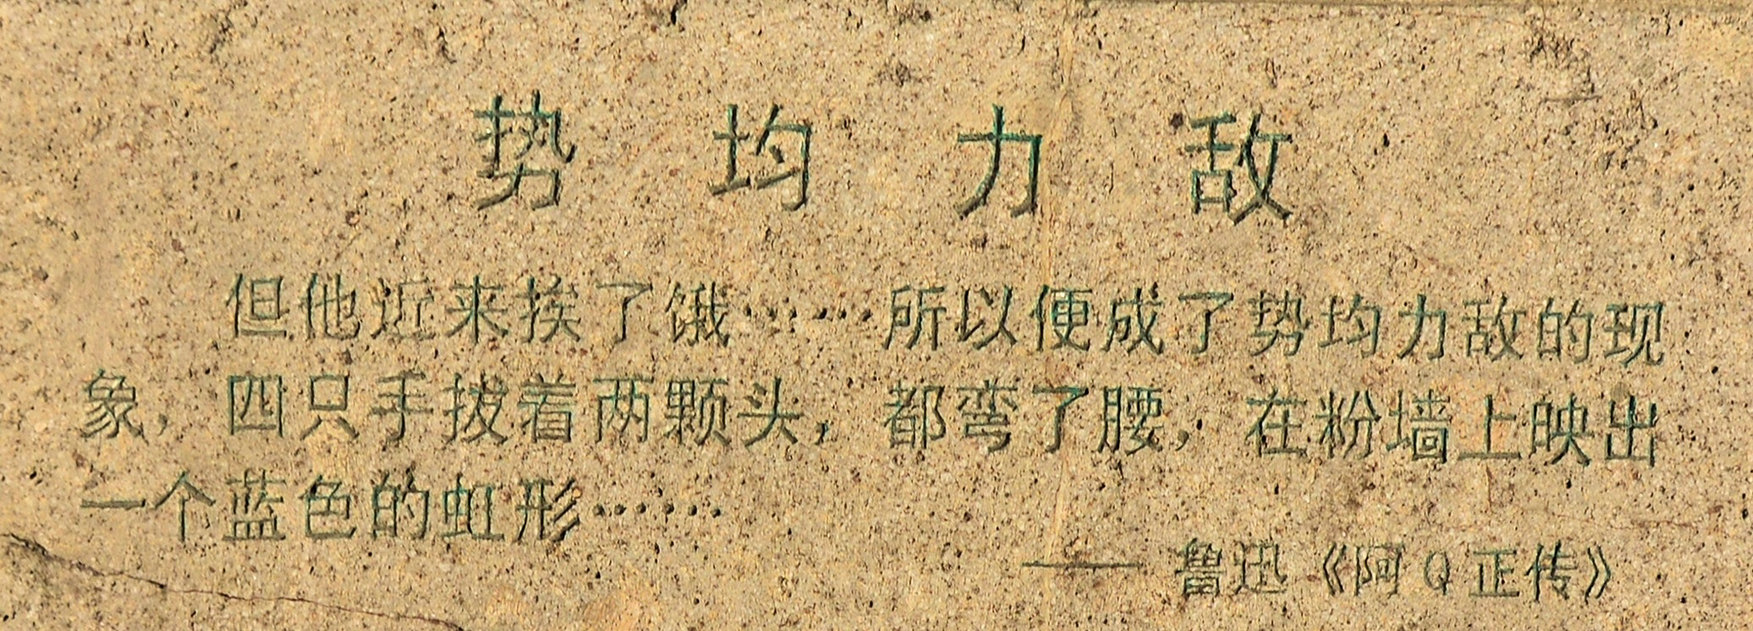 势均力敌
但他近来挨了饿……所以便成了势均力敌的现
象，四只手拔着两颗头，都弯了腰，在粉墙上映出
一个蓝色的虹形……
——鲁迅《阿Q正传》